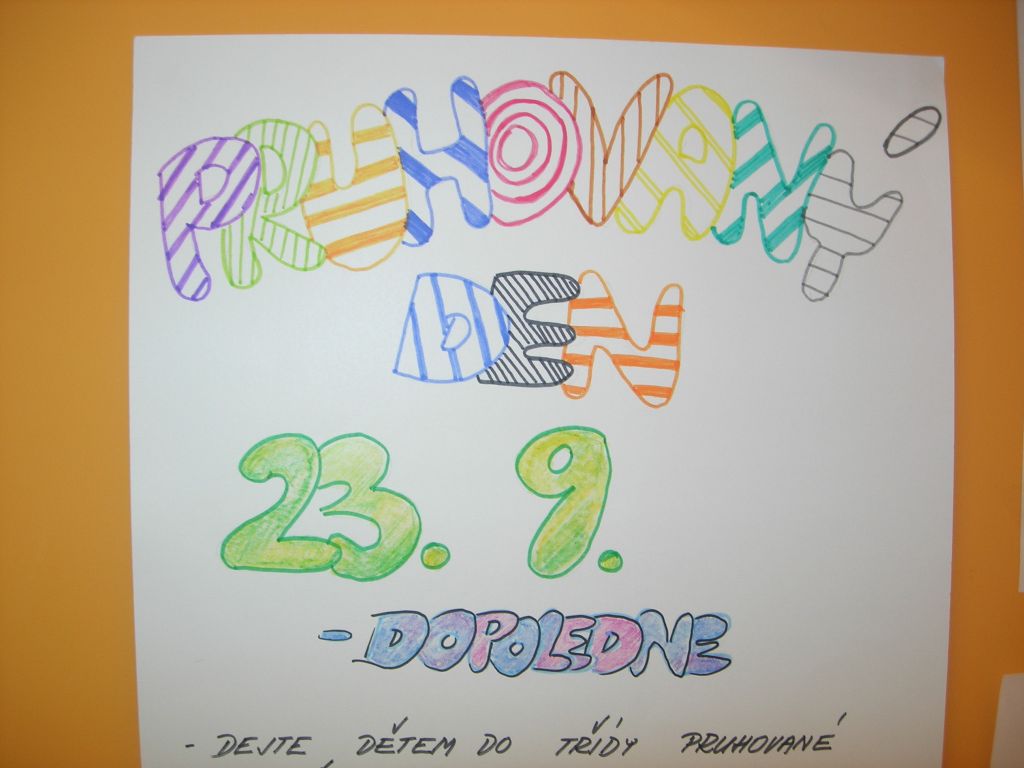 PRUHOVANÝ
DEN
23. 9.
- DOPOLEDNE
- DEJTE DĚTEM DO TŘÍDY PRUHOVANÉ